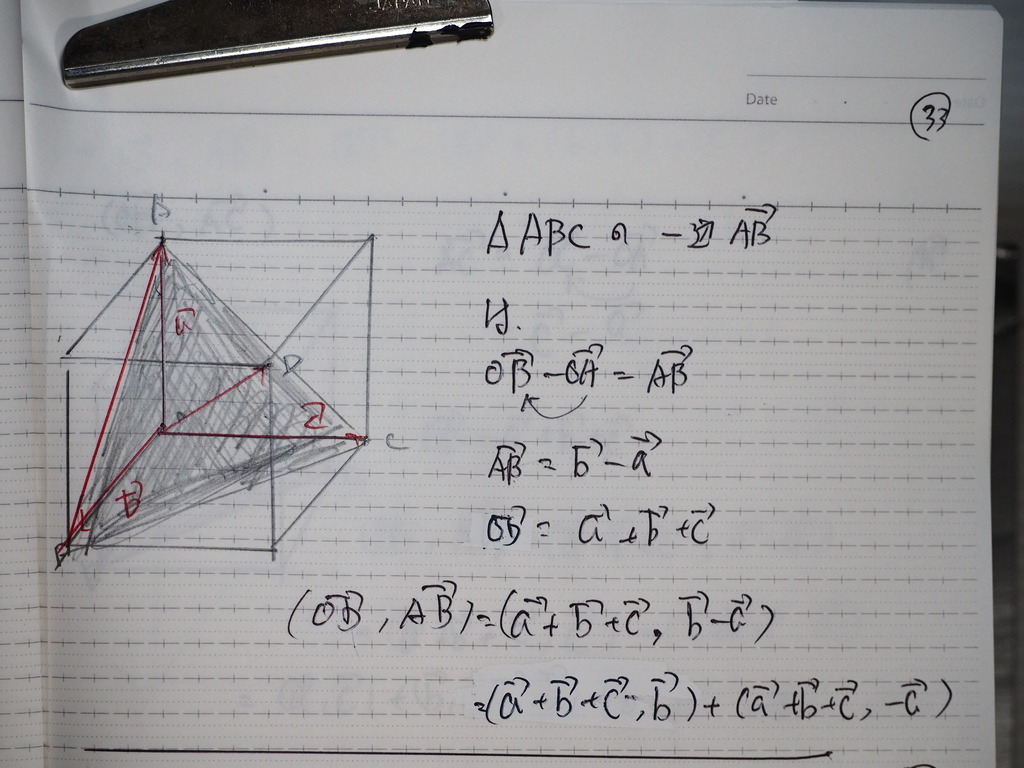 JAPAN
Date
33
△ABC の 一辺 \vec{AB}
は.
\vec{OB} - \vec{OA} = \vec{AB}
\vec{AB} = \vec{b} - \vec{a}
\vec{OD} = \vec{a} + \vec{b} + \vec{c}
(\vec{OD}, \vec{AB}) = (\vec{a} + \vec{b} + \vec{c}, \vec{b} - \vec{a})
= (\vec{a} + \vec{b} + \vec{c}, \vec{b}) + (\vec{a} + \vec{b} + \vec{c}, -\vec{a})
\vec{a}
D
C
\vec{b}